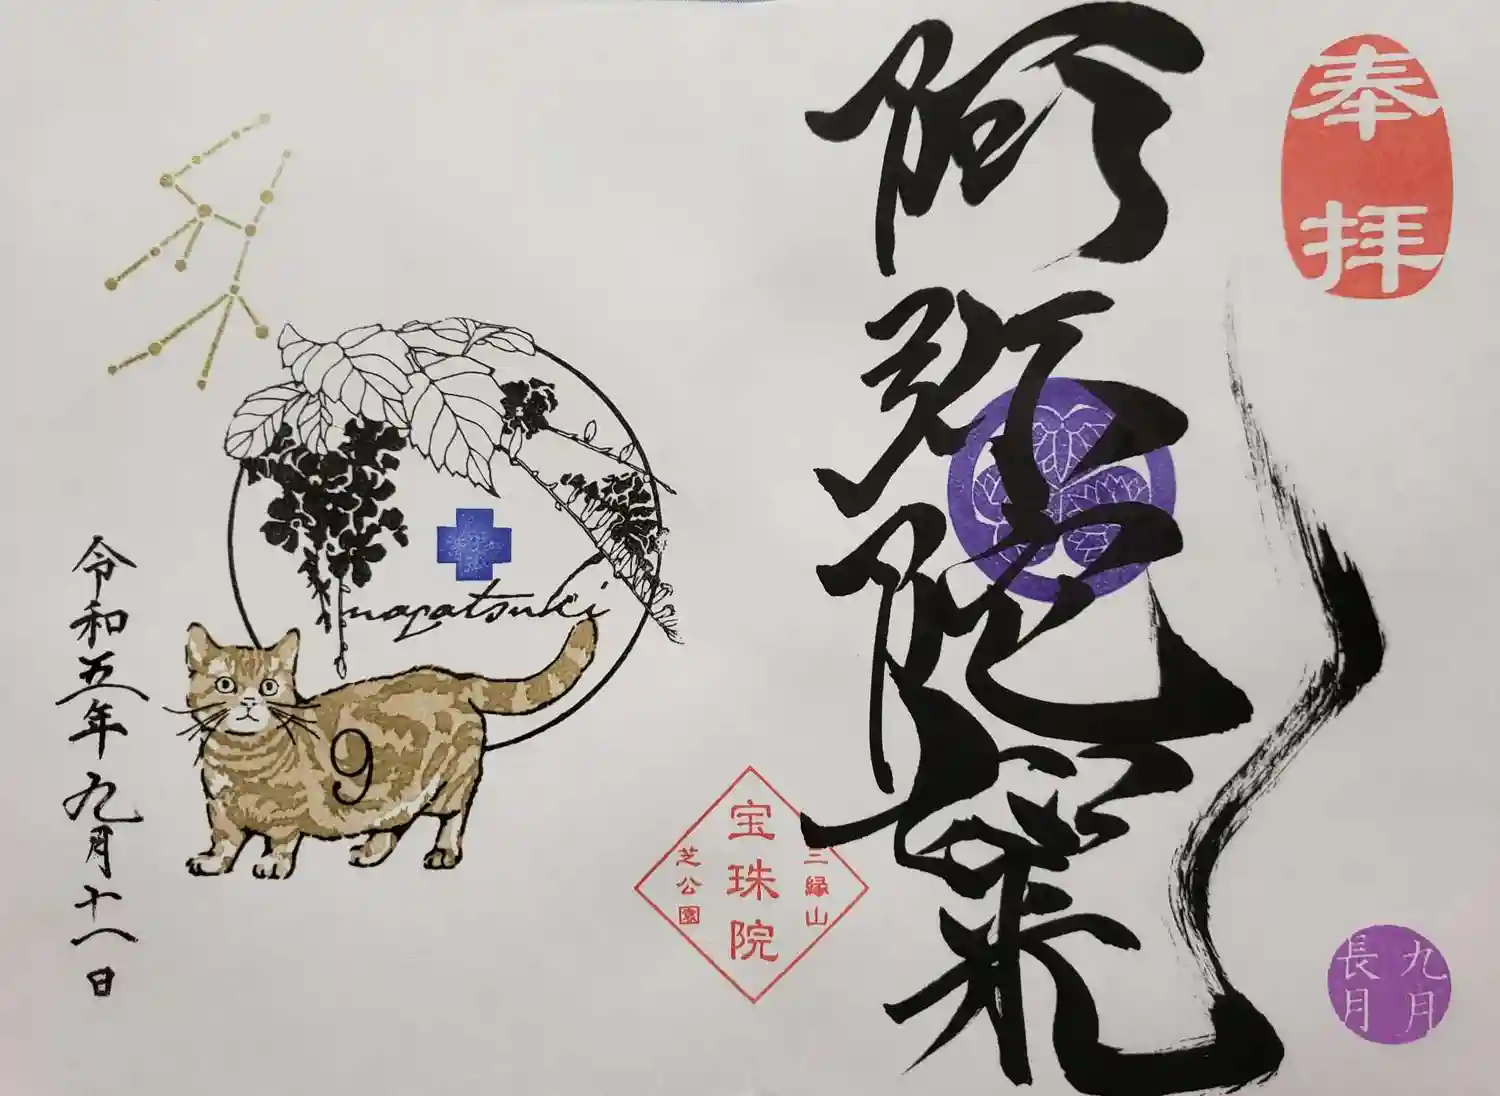 奉拝
九月
長月
阿弥陀如来
三縁山
宝珠院
芝公園
nagatsuki
9
令和五年九月十八日